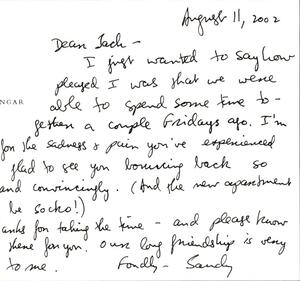 August 11, 2002
Dear Jack –
I just wanted to say how
pleased I was that we were
NGAR
able to spend some time to-
gether a couple Fridays ago. I'm
for the sadness & pain you've experienced
glad to see you bouncing back so
and convincingly. (And the new apartment
be socko!)
anks for taking the time – and please know
there for you. Our long friendship is very
to me. Fondly – Sandy